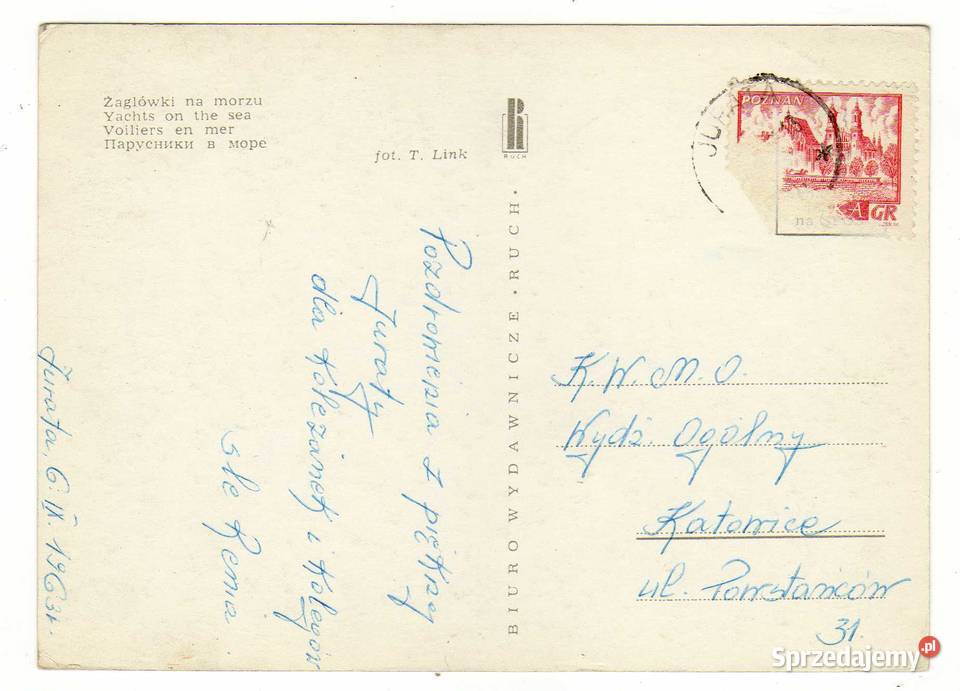 Żaglówki na morzu
Yachts on the sea
Voiliers en mer
Парусники в море
fot. T. Link
RUCH
BIURO WYDAWNICZE • RUCH •
POZNAŃ
GR
na
Jurata, 6.IX.1963r.
Pozdrowienia z pięknej
Juraty
dla koleżanek i kolegów
śle Renia
K.W.M.O.
Wydz. Ogólny
Katowice
ul. Powstańców
31.
Sprzedajemy.pl